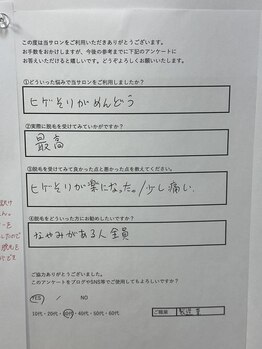 この度は当サロンをご利用いただきありがとうございます。
お手数をおかけしますが、今後の参考までに下記のアンケートに
お答えいただけると嬉しいです。どうぞよろしくお願いいたします。
①どういった悩みで当サロンをご利用しましたか？
ヒゲそりがめんどう
②実際に脱毛を受けてみていかがですか？
最高
③脱毛を受けてみて良かった点と悪かった点を教えてください。
ヒゲそりが楽になった。/少し痛い.
④脱毛をどういった方にお勧めしたいですか？
なやみがある人全員
ご協力ありがとうございました。
このアンケートをブログやSNS等でご使用してもよろしいですか？
YES / NO
10代・20代・30代・40代・50代・60代
ご職業